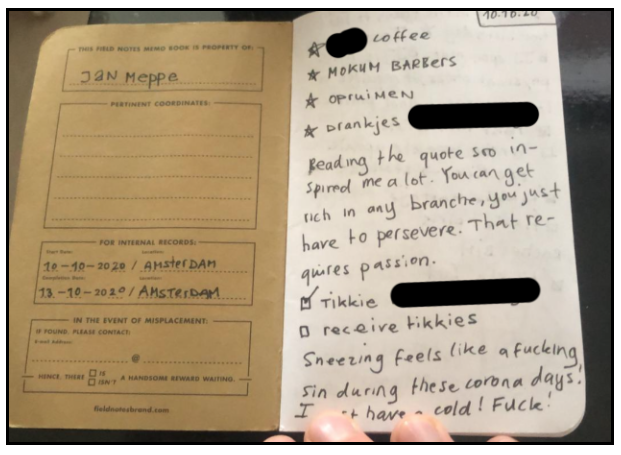 THIS FIELD NOTES MEMO BOOK IS PROPERTY OF:
Jan Meppe
PERTINENT COORDINATES:
FOR INTERNAL RECORDS:
Start Date: Location:
10-10-2020 / AMSTERDAM
Completion Date: Location:
13-10-2020 / AMSTERDAM
IN THE EVENT OF MISPLACEMENT:
IF FOUND: PLEASE CONTACT:
E-mail Address:
@
HENCE, THERE ☐ IS
☐ ISN'T A HANDSOME REWARD WAITING.
fieldnotesbrand.com
10.10.20
☆ coffee
☆ MOKUM BARBERS
☆ OPRUIMEN
☆ Drankjes
Reading the quote soo in-
spired me a lot. You can get
rich in any branche, you just
have to persevere. That re-
quires passion.
☑ Tikkie
☐ receive tikkies
Sneezing feels like a fucking
sin during these corona days.
I have a cold! Fuck!